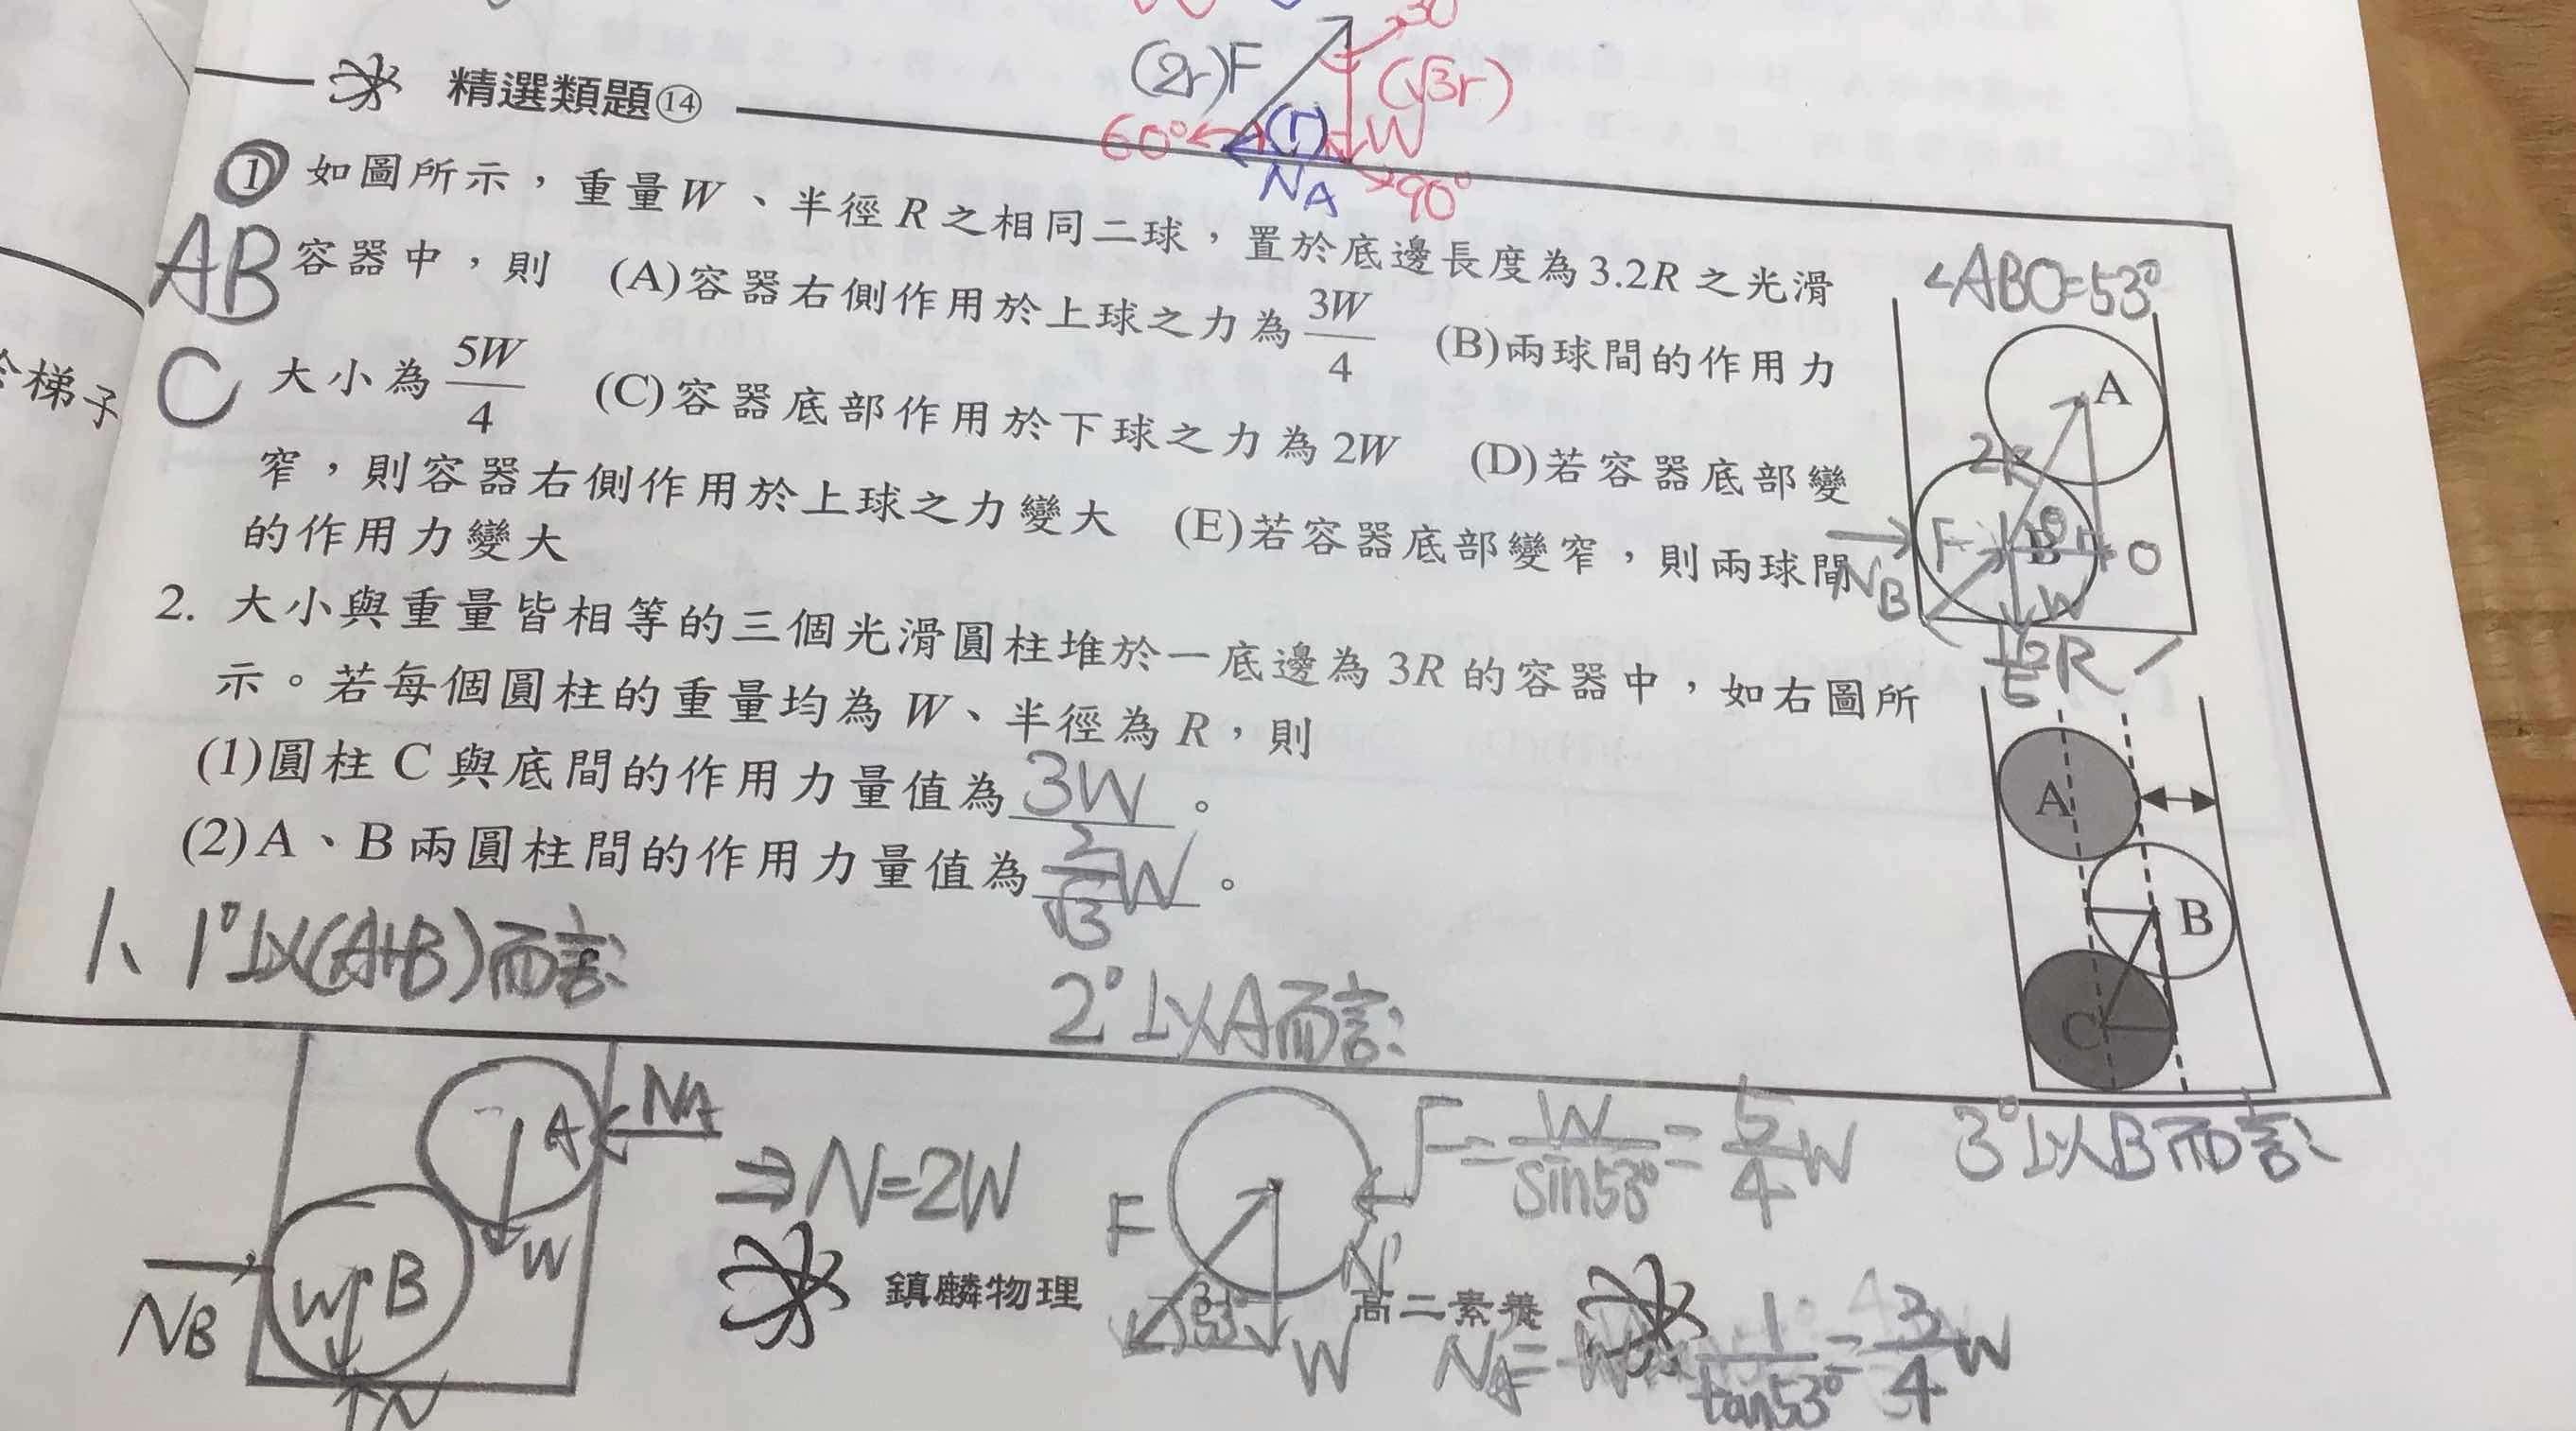 (2r)F
30
(√3r)
60°
(r)
W
N_A
90°
精選類題⑭
① 如圖所示，重量W、半徑R之相同二球，置於底邊長度為3.2R之光滑
AB
容器中，則 (A)容器右側作用於上球之力為3W/4 (B)兩球間的作用力
C
大小為5W/4 (C)容器底部作用於下球之力為2W (D)若容器底部變
窄，則容器右側作用於上球之力變大 (E)若容器底部變窄，則兩球間
的作用力變大
∠ABO=53°
A
2R
F
B
θ
O
N_B
W
2. 大小與重量皆相等的三個光滑圓柱堆於一底邊為3R的容器中，如右圖所
示。若每個圓柱的重量均為W、半徑為R，則
(1)圓柱C與底間的作用力量值為3W。
(2)A、B兩圓柱間的作用力量值為2/√3 W。
A
B
C
梯子
1、1°以(A+B)而言：
2°以A而言：
3°以B而言：
N_A
A
W
B
W
N_B
N
⇒N=2W
F
53°
W
N
F=W/sin53°=5/4 W
N_A=W×1/tan53°=3/4 W
鎮麟物理
高二素養